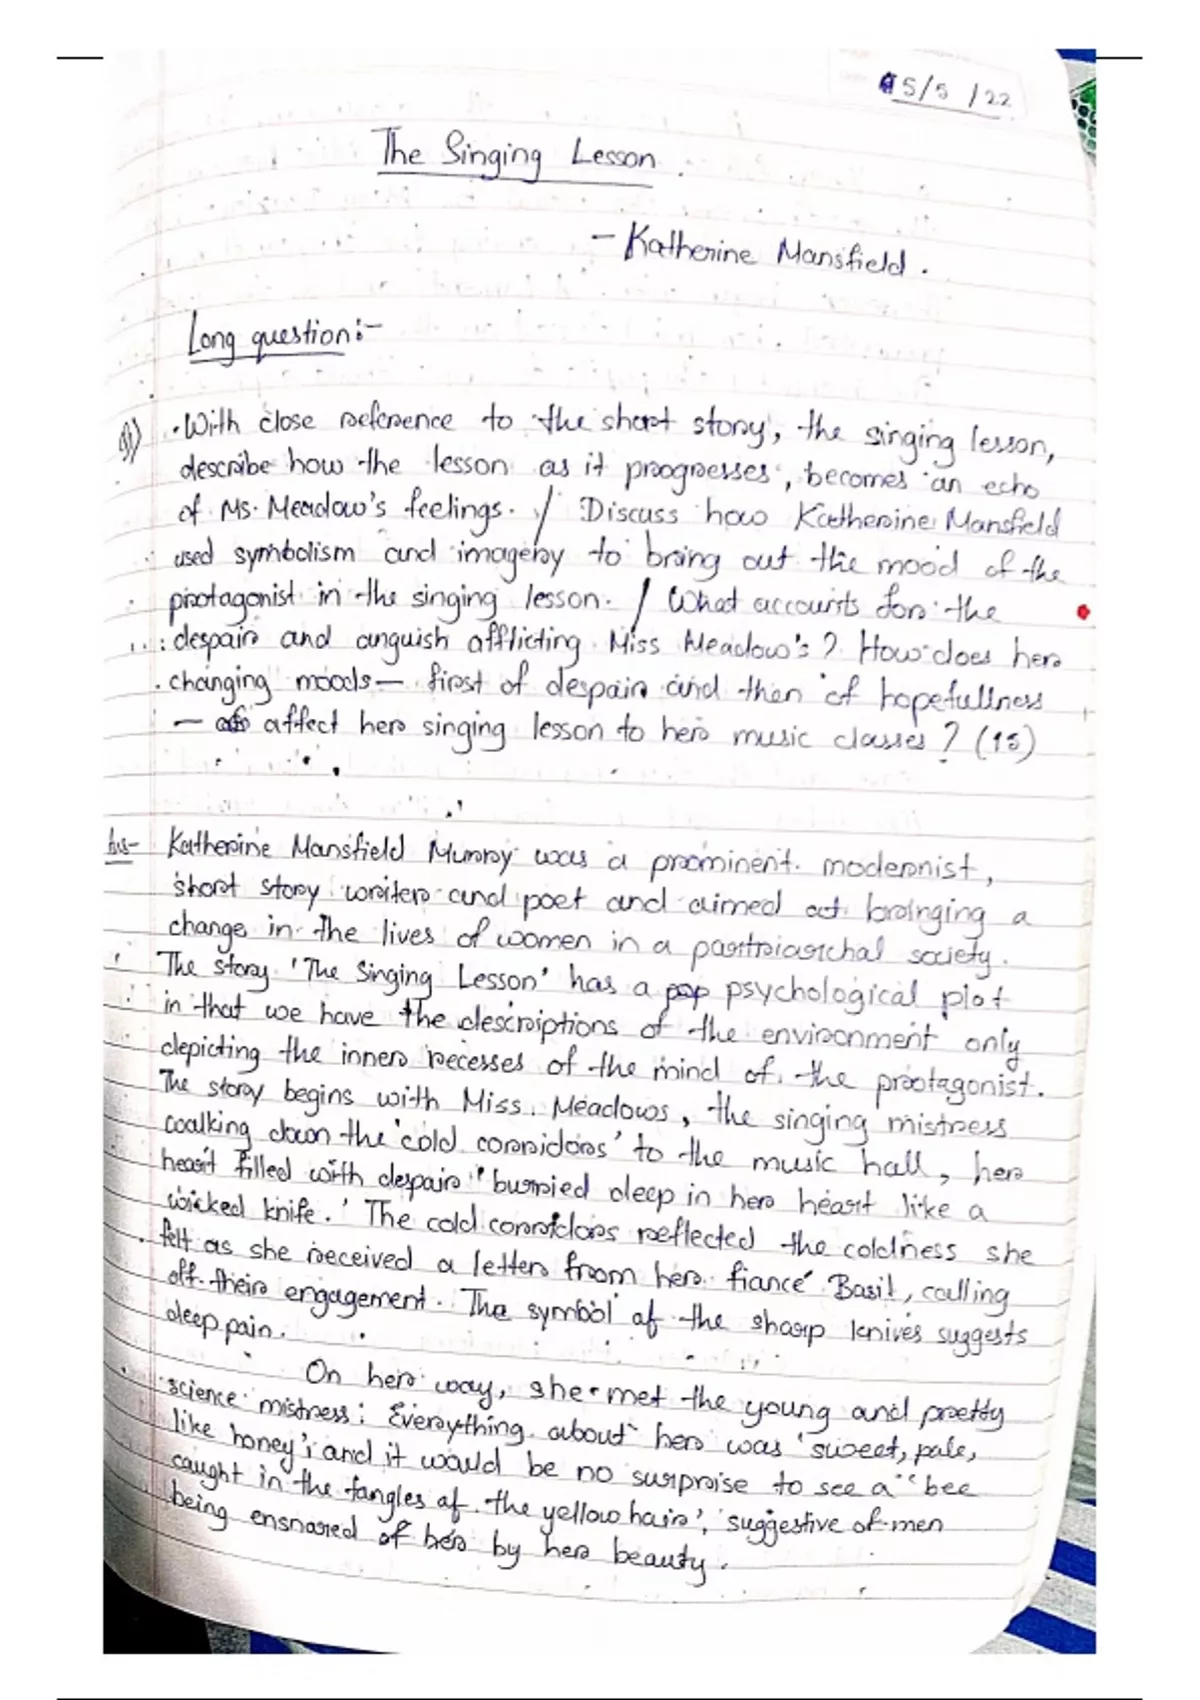 5/5/22
The Singing Lesson.
- Katherine Mansfield.
Long question:-
Q1) With close reference to the short story, the singing lesson,
describe how the lesson as it progresses, becomes an echo
of Ms. Meadow's feelings. / Discuss how Katherine Mansfield
used symbolism and imagery to bring out the mood of the
protagonist in the singing lesson. / What accounts for the
despair and anguish afflicting Miss Meadow's? How does her
changing moods - first of despair and then of hopefullness
- affect her singing lesson to her music classes? (15)
Ans- Katherine Mansfield Murray was a prominent modernist,
short story writer and poet and aimed at bringing a
change in the lives of women in a partriarchal society.
The story 'The Singing Lesson' has a psychological plot
in that we have the descriptions of the environment only
depicting the inner recesses of the mind of the protagonist.
The story begins with Miss. Meadows, the singing mistress
walking down the 'cold corridors' to the music hall, her
heart filled with despair 'burried deep in her heart like a
wicked knife.' The cold corridors reflected the coldness she
felt as she received a letter from her fiancé Basil, calling
off their engagement. The symbol of the sharp knives suggests
deep pain.
On her way, she met the young and pretty
science mistress: Everything about her was 'sweet, pale,
like honey'; and it would be no surprise to see a 'bee
caught in the tangles of the yellow hair', suggestive of men
being ensnared of her by her beauty.